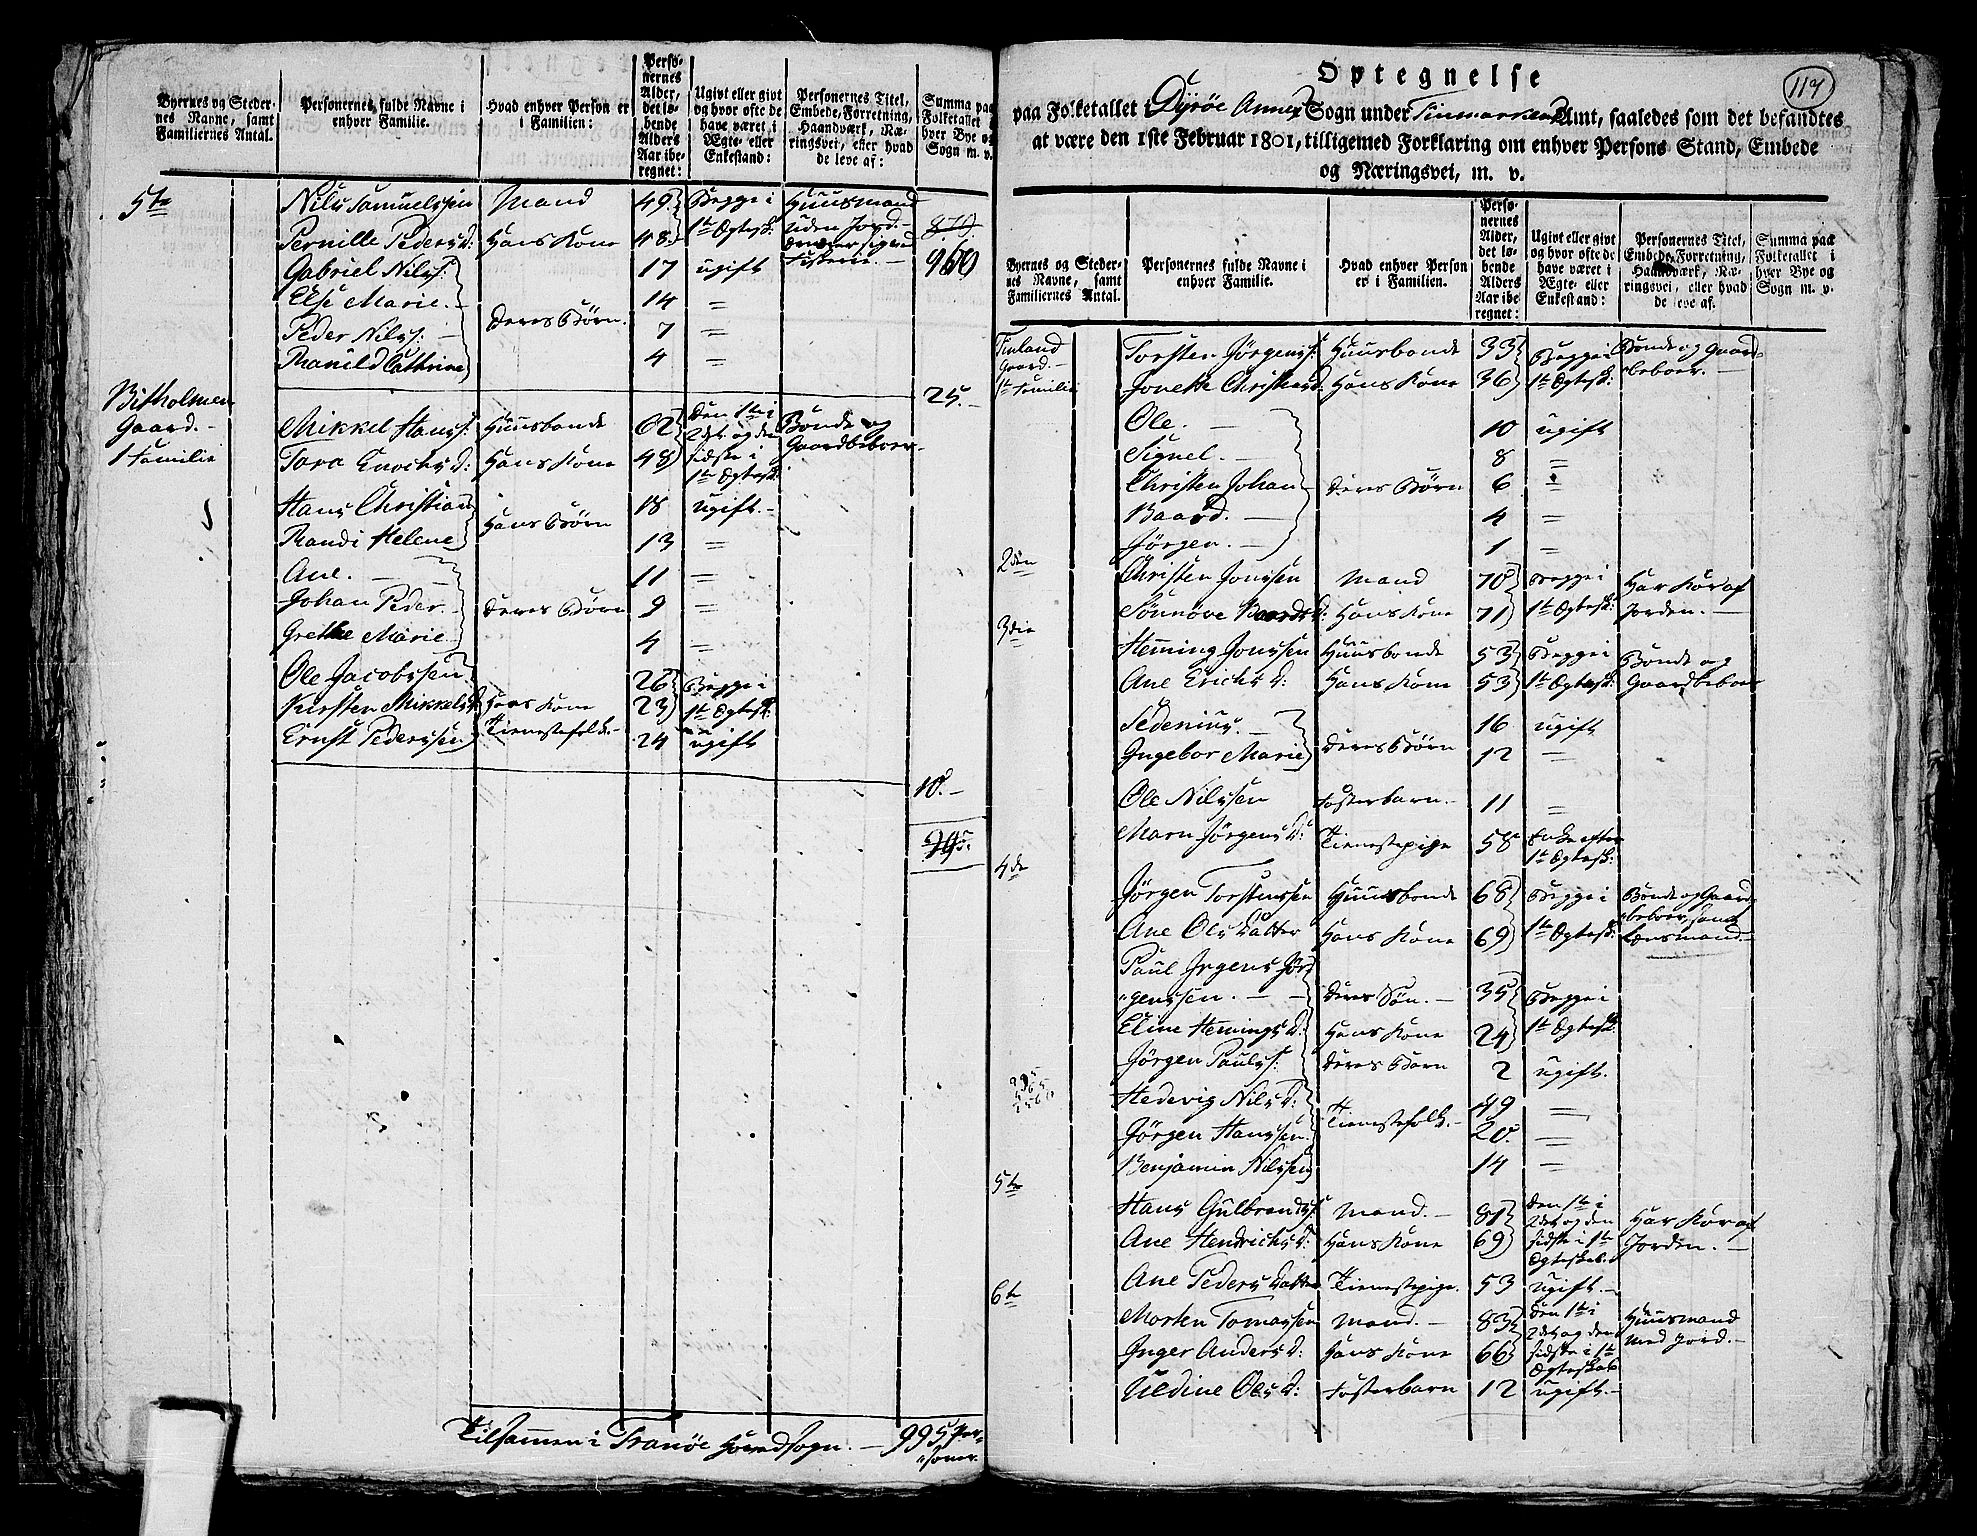 Byernes og Steder-
nes Navne, samt
Familiernes Antal.
Personernes fulde Navne i
enhver Familie.
Hvad enhver Person er
i Familien:
Perso-
nernes
Alder,
det lø-
bende
Alders
Aar ibe-
regnet:
Ugivt eller givt
og hvor ofte de
have været i
Ægte- eller
Enkestand:
Personernes Titel,
Embede, Forretning,
Haandværk, Næ-
ringsvei, efter hvad
de leve af:
Summa paa
Folketallet i
hver Bye og
Sogn m. v.
5te Nils Samuelssen Mand 49 Begge i Huusmand
Pernille Peders D: Hans Kone 48 1te Ægtesk: uden Jord. 870
Gabriel Nils S: 17 ugift 960
Else Marie. 14 =
Deres Børn.
Peder Nils S: 7 =
Ranild Cathrine 4 =
25.
Bitholmen
Gaard.
1 Familie
Mikkel Hans S: Huusbonde 62 Den 1te i Bonde og
Tora Enochs D: Hans Kone 48 2det og den Gaardbeboer
sidste i
1te Ægtesk:
Hans Christian 18 ugift.
Hans Børn
Randi Helene 13 =
Ane. 11 =
Johan Peder Deres Børn 9 =
Grethe Marie 4 =
Ole Jacobssen 26 Begge i
Kirsten Mikkels D Hans Kone 23 1te Ægtesk:
Ernst Pederssen Tienestefolk. 24 ugift
10.
995.
Tilsammen i Tranøe Hovedsogn. 995 Per-
soner.
117
Optegnelse
paa Folketallet i Dyrøe Annex Sogn under Finmarkens Amt, saaledes som det befandtes
at være den 1ste Februar 1801, tilligemed Forklaring om enhver Persons Stand, Embede
og Næringsvei, m. v.
Byernes og Steder-
nes Navne, samt
Familiernes Antal.
Personernes fulde Navne i
enhver Familie.
Hvad enhver Person
er i Familien.
Perso-
nernes
Alder,
det lø-
bende
Alders
Aar ibe-
regnet:
Ugivt eller givt
og hvor ofte de
have været i
Ægte- eller
Enkestand:
Personernes Titel,
Embede, Forretning,
Haandværk, Næ-
ringsvei, eller hvad
de leve af.
Summa paa
Folketallet i
hver Bye og
Sogn m. v.
Finland
Gaard.
1te Familie
Torsten Jørgens S: Huusbonde 33 Begge i Bonde og Gaard-
Jonette Christens D: Hans Kone 36 1te Ægtesk: beboer.
Ole. 10 ugift
Signel. 8 =
Christen Johan Deres Børn 6 =
Baard. 4 =
Jørgen. 1 =
2den Christen Jonssen Mand 70 Begge i Har Kor af
Sønnøve Baards D: Hans Kone 71 1te Ægtesk: Jorden.
3die Heming Jonssen Huusbonde 53 Begge i Bonde og
Ane Erichs D: Hans Kone 53 1te Ægtesk: Gaardbeboer
Sedenius. 16 ugift
Deres Børn
Ingebor Marie 12 =
Ole Nilssen Fosterbarn. 11 =
Marn Jørgens D: Tienestepige 58 Enke efter
1te Ægtesk:
4de Jørgen Torstenssen Huusbonde 68 Begge i Bonde og Gaard-
Ane Ols Datter Hans Kone 69 1te Ægtesk: beboer, samt
Lensmand.
Paul Irgens Jør
genssen. Deres Søn. 35 Begge i
Eline Hemings D: Hans Kone 24 1te Ægtesk:
Jørgen Pauls S: Deres Barn 2 ugift.
Hedevig Nils D: 49 =
Tienestefolk.
Jørgen Hanssen. 20. =
Benjamin Nilssen 14 =
995
5te Hans Gulbrands S Mand. 81 Den 1te i Har Kor af
Ane Hendrichs D: Hans Kone 69 2det og den Jorden.
sidste i 1te
Ægteskab.
Ane Peders Datter Tienestepige. 53 ugift.
6te Morten Tomassen Mand. 83 Den 1te i Huusmand
Inger Anders D: Hans Kone 66 2det og den med Jord.
sidste i 1te
Ægteskab
Uldine Ols D: Fosterbarn 12 ugift.